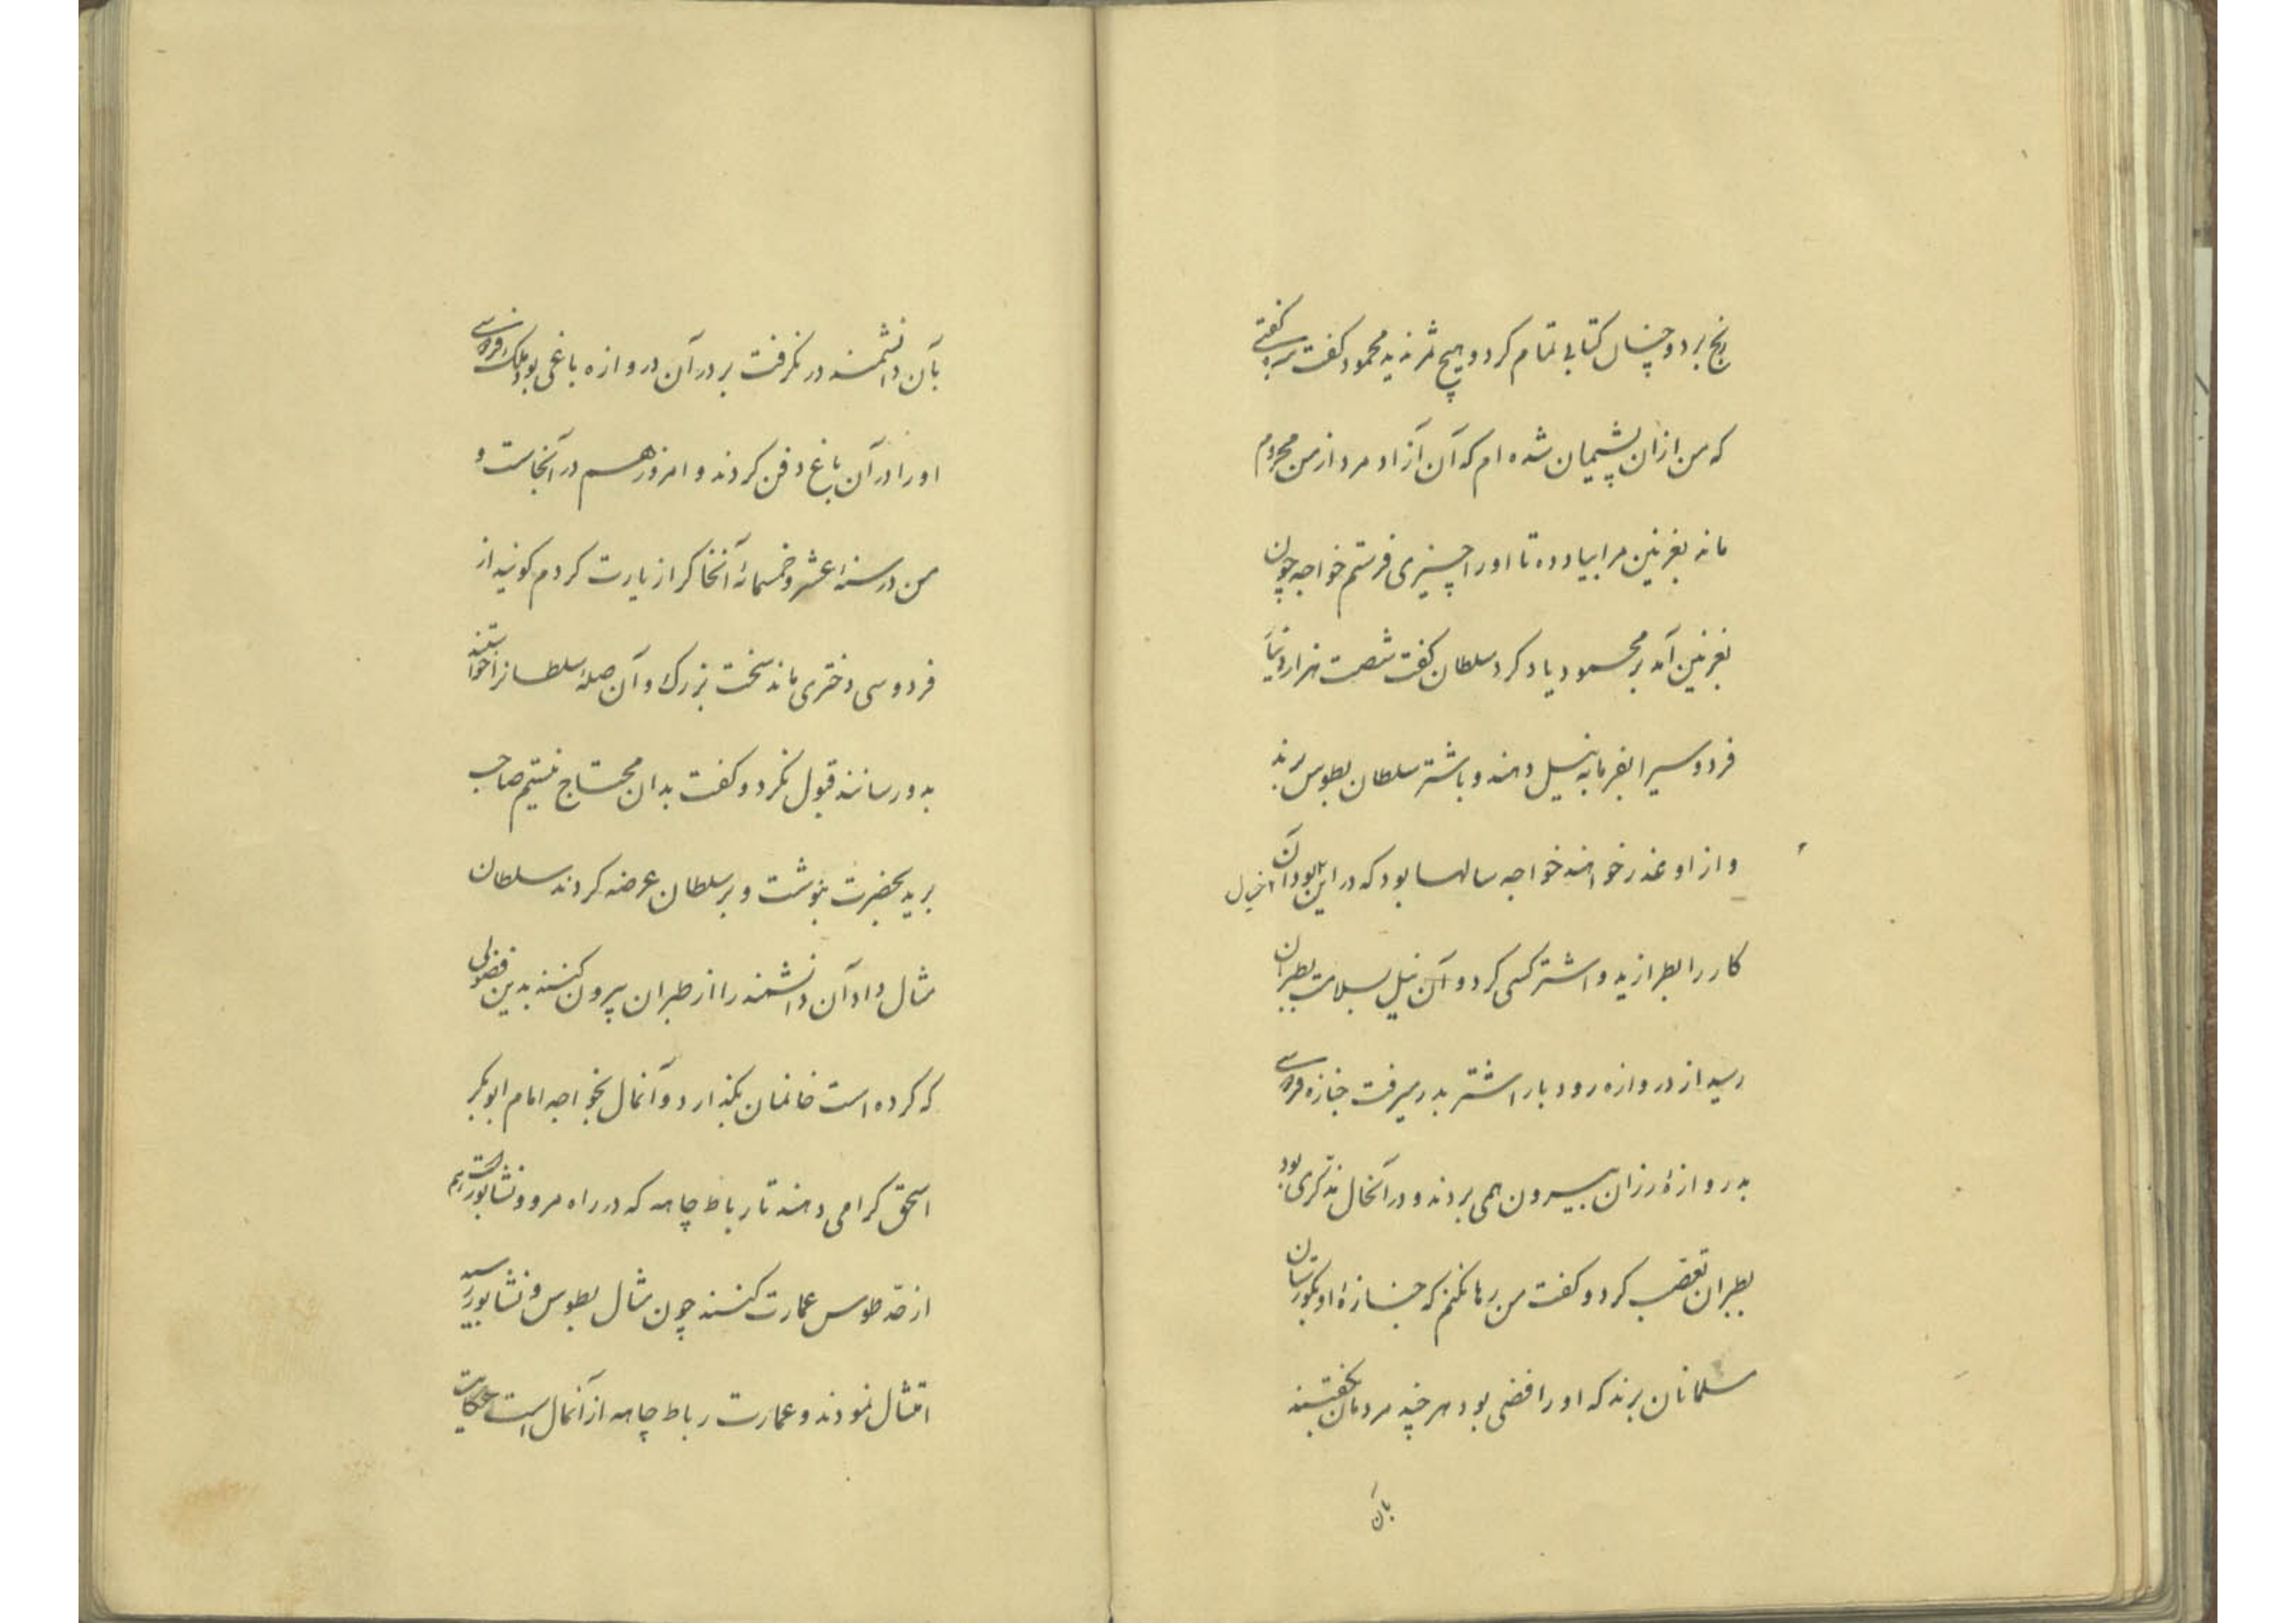 رنج برد و چنان کتابی تمام کرد و هیچ ثمر ندید محمود گفت سره گفتی
که من ازان پشیمان شده ام که آن آزاد مرد از من محروم
ماند بغزنین مرا بیاد ده تا او را چیزی فرستم خواجه چون
بغزنین آمد بر محمود یاد کرد سلطان گفت شصت هزار دینار
فردوسیرا بفرمایه نیل دهند و باشتر سلطان بطوس برند
و از او عذر خواهند خواجه سالها بود که در این بود آن
کار را بطرازید و اشتر گسی کرد و آن نیل بسلامت بطبران
رسید از دروازه رودبار اشتر بدر میرفت جنازه فردوسی
بدروازهٔ رزان بیرون همی بردند و در آنحال مذکری بود
بطبران تعصب کرد و گفت من رها نکنم که جنازهٔ او بگورستان
مسلمانان برند که او رافضی بود هر چند مردمان بگفتند
بآن
بآن دانشمند در نگرفت بر در آن دروازه باغی بود ملک فردوسی
او را در آن باغ دفن کردند و امروز هم در آنجاست و
من در سنهٔ عشر و خمسمائه آنخاکرا زیارت کردم گویند از
فردوسی دختری ماند سخت بزرگ و آن صلهٔ سلطانرا خواستند
بدو رسانند قبول نکرد و گفت بدان محتاج نیستم صاحب
برید بحضرت بنوشت و بر سلطان عرضه کردند سلطان
مثال داد آن دانشمند را از طبران بیرون کنند بدین فضولی
که کرده است خانمان بگذارد و آنمال بخواجه امام ابوبکر
اسحق کرامی دهند تا رباط چاهه که در راه مرو و نشابور است
از حد طوس عمارت کنند چون مثال بطوس و نشابور رسید
امتثال نمودند و عمارت رباط چاهه از آنمال است حکایت